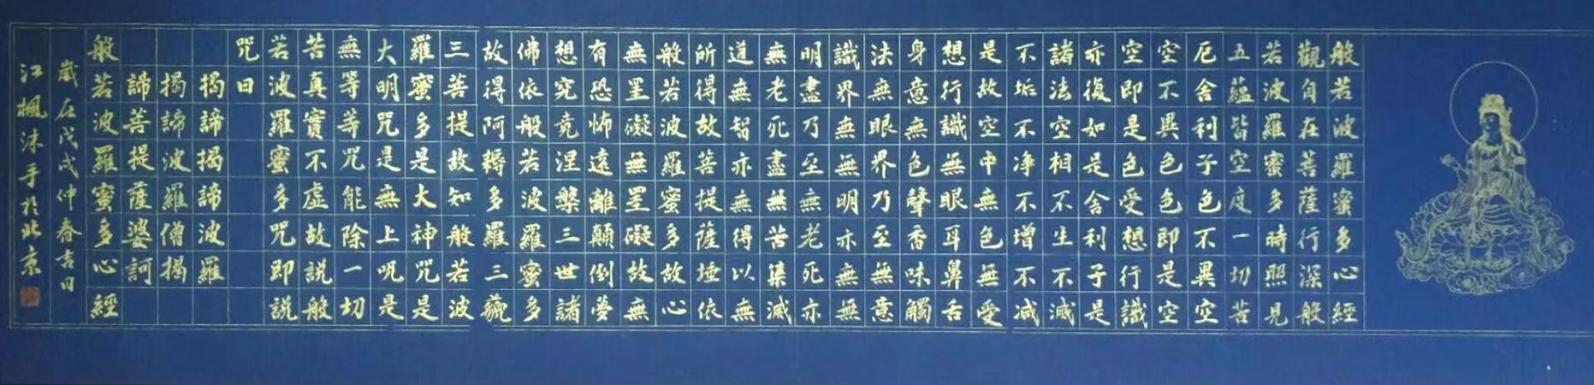 般若波羅蜜多心經
觀自在菩薩行深般
若波羅蜜多時照見
五蘊皆空度一切苦
厄舍利子色不異空
空不異色色即是空
空即是色受想行識
亦復如是舍利子是
諸法空相不生不滅
不垢不净不增不减
是故空中無色無受
想行識無眼耳鼻舌
身意無色聲香味觸
法無眼界乃至無意
識界無無明亦無無
明盡乃至無老死亦
無老死盡無苦集滅
道無智亦無得以無
所得故菩提薩埵依
般若波羅蜜多故心
無罣礙無罣礙故無
有恐怖遠離顛倒夢
想究竟涅槃三世諸
佛依般若波羅蜜多
故得阿耨多羅三藐
三菩提故知般若波
羅蜜多是大神咒是
大明咒是無上咒是
無等等咒能除一切
苦真實不虛故說般
若波羅蜜多咒即說
咒曰
揭諦揭諦波羅
揭諦波羅僧揭
諦菩提薩婆訶
般若波羅蜜多心經
歲在戊戌仲春吉日
江楓沐手於北京